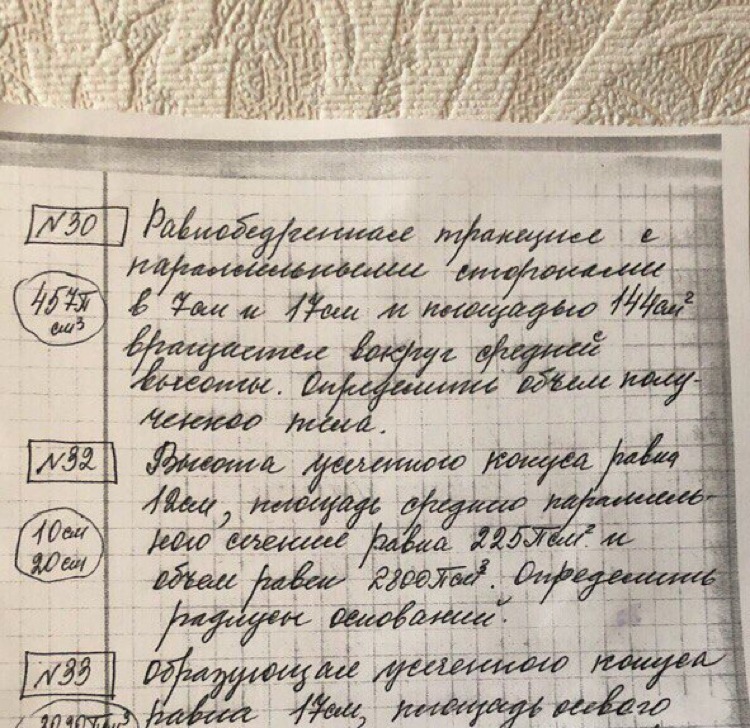 №30
Равнобедренная трапеция с
параллельными сторонами
457π
см³
в 7см и 17см и площадью 144см²
вращается вокруг средней
высоты. Определить объем полу-
ченного тела.
№32
Высота усеченного конуса равна
12см, площадь среднего параллель-
10см
20см
ного сечения равна 225πсм² и
объем равен 2800πсм³. Определить
радиусы оснований.
№33
Образующая усеченного конуса
равна 17см, площадь осевого